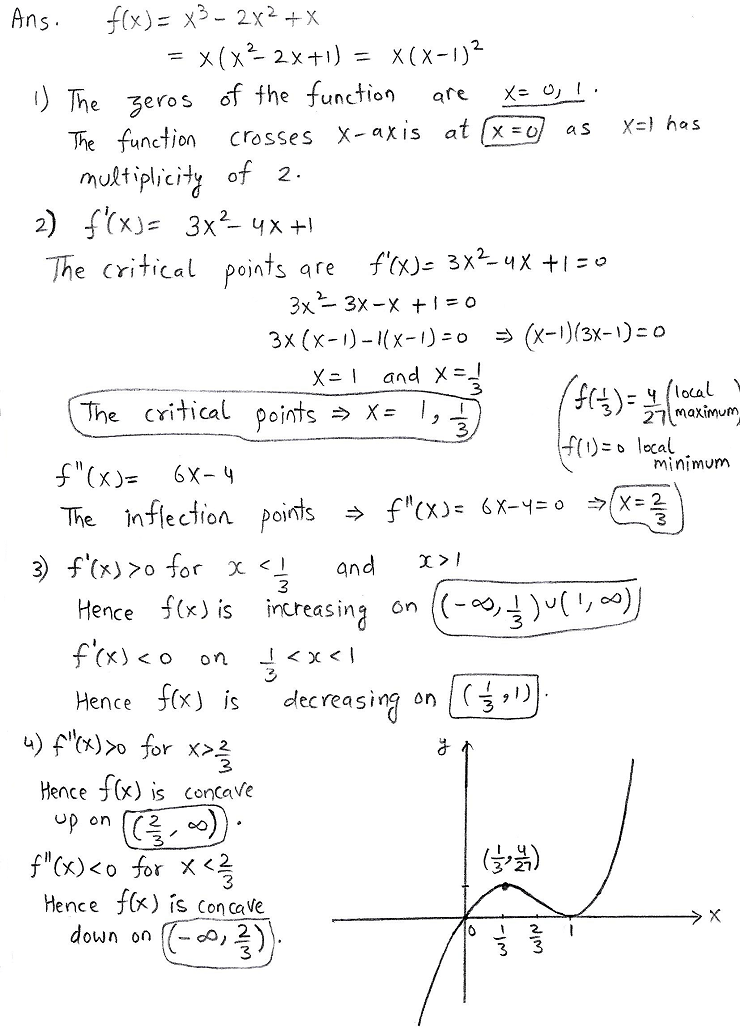 Ans. f(x) = x³ - 2x² + x
= x(x² - 2x+1) = x(x-1)²
1) The zeros of the function are x = 0, 1.
The function crosses x-axis at x=0 as x=1 has
multiplicity of 2.
2) f'(x) = 3x² - 4x +1
The critical points are f'(x) = 3x² - 4x +1 = 0
3x² - 3x - x + 1 = 0
3x(x-1) - 1(x-1) = 0 ⇒ (x-1)(3x-1) = 0
x = 1 and x = 1/3
The critical points ⇒ x = 1, 1/3
f(1/3) = 4/27 (local maximum)
f(1) = 0 local
minimum
f"(x) = 6x - 4
The inflection points ⇒ f"(x) = 6x-4 = 0 ⇒ x = 2/3
3) f'(x) > 0 for x < 1/3 and x > 1
Hence f(x) is increasing on (-∞, 1/3) ∪ (1, ∞)
f'(x) < 0 on 1/3 < x < 1
Hence f(x) is decreasing on (1/3, 1).
4) f"(x) > 0 for x > 2/3
Hence f(x) is concave
up on (2/3, ∞).
f"(x) < 0 for x < 2/3
Hence f(x) is concave
down on (-∞, 2/3).
y
(1/3, 4/27)
x
0 1/3 2/3 1